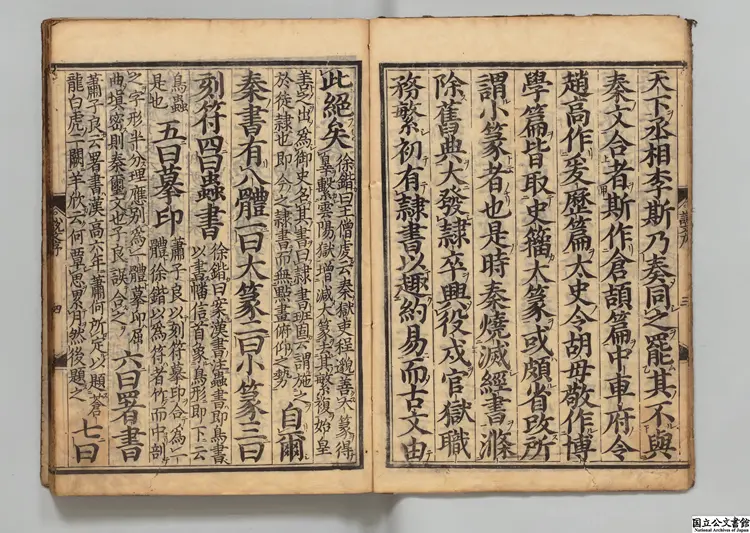 天下丞相李斯乃奏同之罷其不與
秦文合者斯作倉頡篇中車府令
趙高作爰歷篇太史令胡毋敬作博
學篇皆取史籀大篆或頗省改所
謂小篆者也是時秦燒滅經書滌
除舊典大發隸卒興役戍官獄職
務繁初有隸書以趣約易而古文由
此絕矣
徐鍇曰王僧虔云秦獄吏程邈善大篆得
辠繫雲陽獄增減大篆去其繁復始皇
善之出爲御史名其書曰隸書班固云謂施之
於徒隸也即今之隸書而無點畫俯仰之勢
自爾
秦書有八體一曰大篆二曰小篆三曰
刻符四曰蟲書
徐鍇曰案漢書注蟲書即鳥書
以書幡信首象鳥形即下云
鳥蟲
是也
五曰摹印
蕭子良以刻符摹印合爲一
體徐鍇以爲符者竹而中剖
之字形半分理應別爲一體摹印屈
曲塡密則秦璽文也子良誤合之
六曰署書
蕭子良云署書漢高六年蕭何所定以題蒼
龍白虎二闕羊欣云何覃思累月然後題之
七曰
三
四
国立公文書館
National Archives of Japan